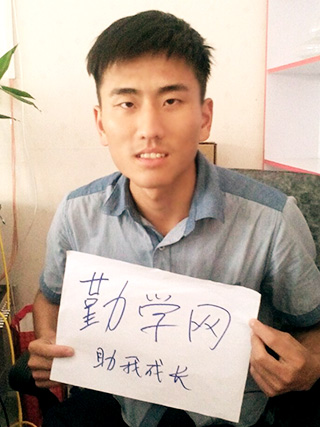 勤学网
助我成长